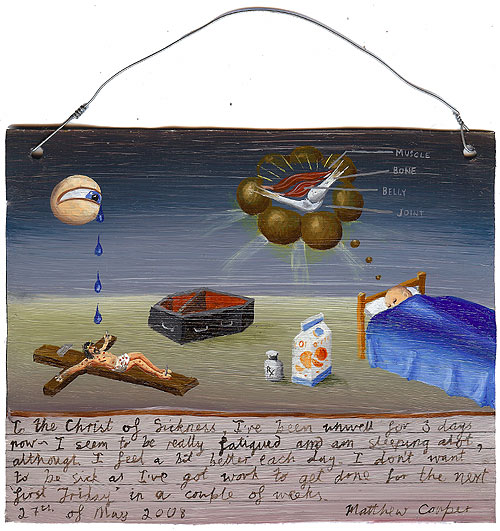 MUSCLE
BONE
BELLY
JOINT
Rx
To the Christ of Sickness, I've been unwell for 3 days
now ~ I seem to be really fatigued and am sleeping alot,
although I feel a bit better each day. I don't want
to be sick as I've got work to get done for the next
'first Friday' in a couple of weeks.
27th of May 2008 Matthew Couper